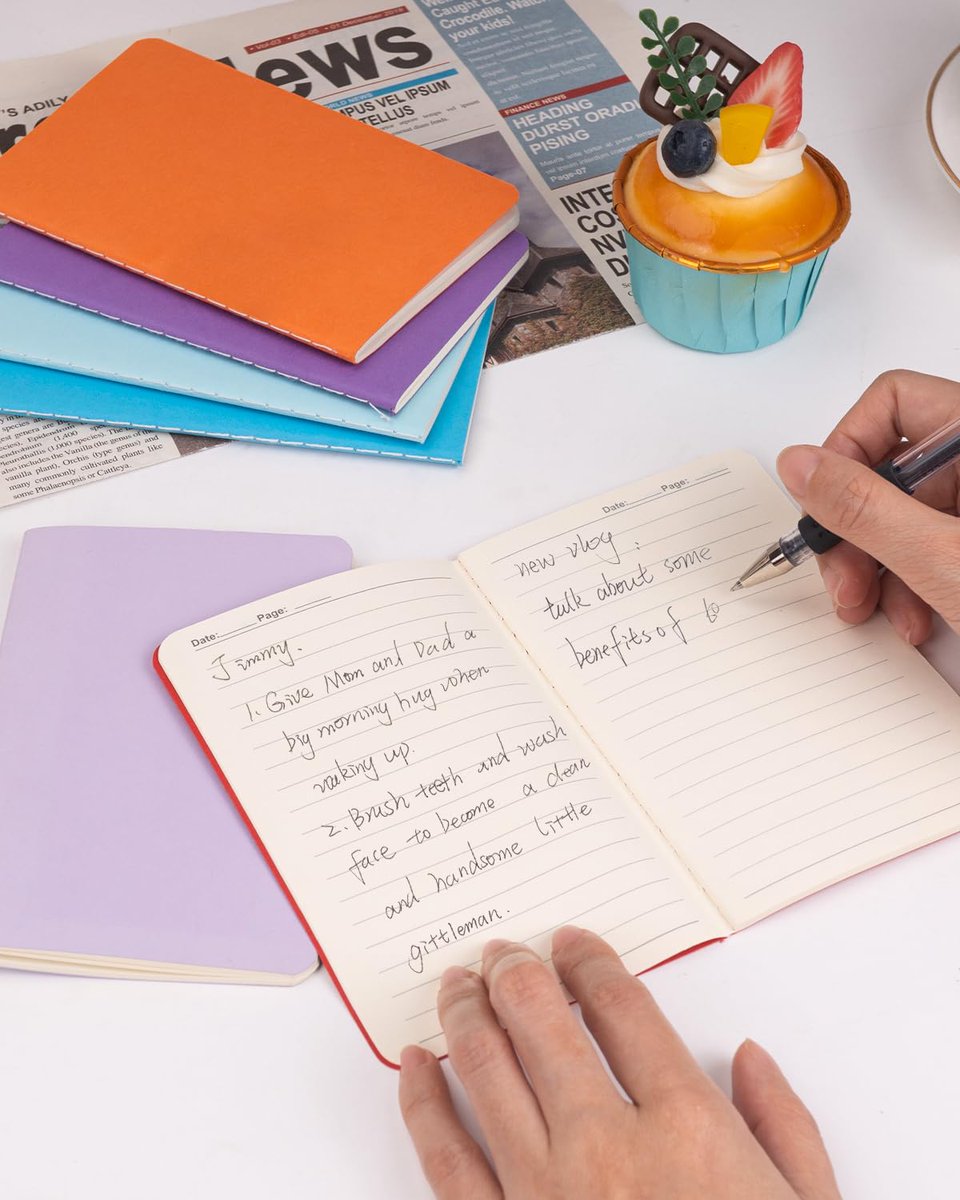 • Vol-03 • Edi-05 • 01 December 2018
ews
'S ADILY
WORLD NEWS
MPUS VEL IPSUM
TELLUS
Caught
Crocodile. Watch
your kids!
FINANCE NEWS
HEADING
DURST ORADI
PISING
Page-07
INTE
COS
NV
DI
(1,400 species).
(1,000 species). The
also includes the Vanilla (the genus of the
vanilla plant), Orchis (type genus) and
many commonly cultivated plants like
some Phalaenopsis or Cattleya.
Date: Page:
Jimmy.
1. Give Mom and Dad a
big morning hug when
waking up.
2. Brush teeth and wash
face to become a clean
and handsome little
gittleman.
Date: Page:
new vlog :
talk about some
benefits of